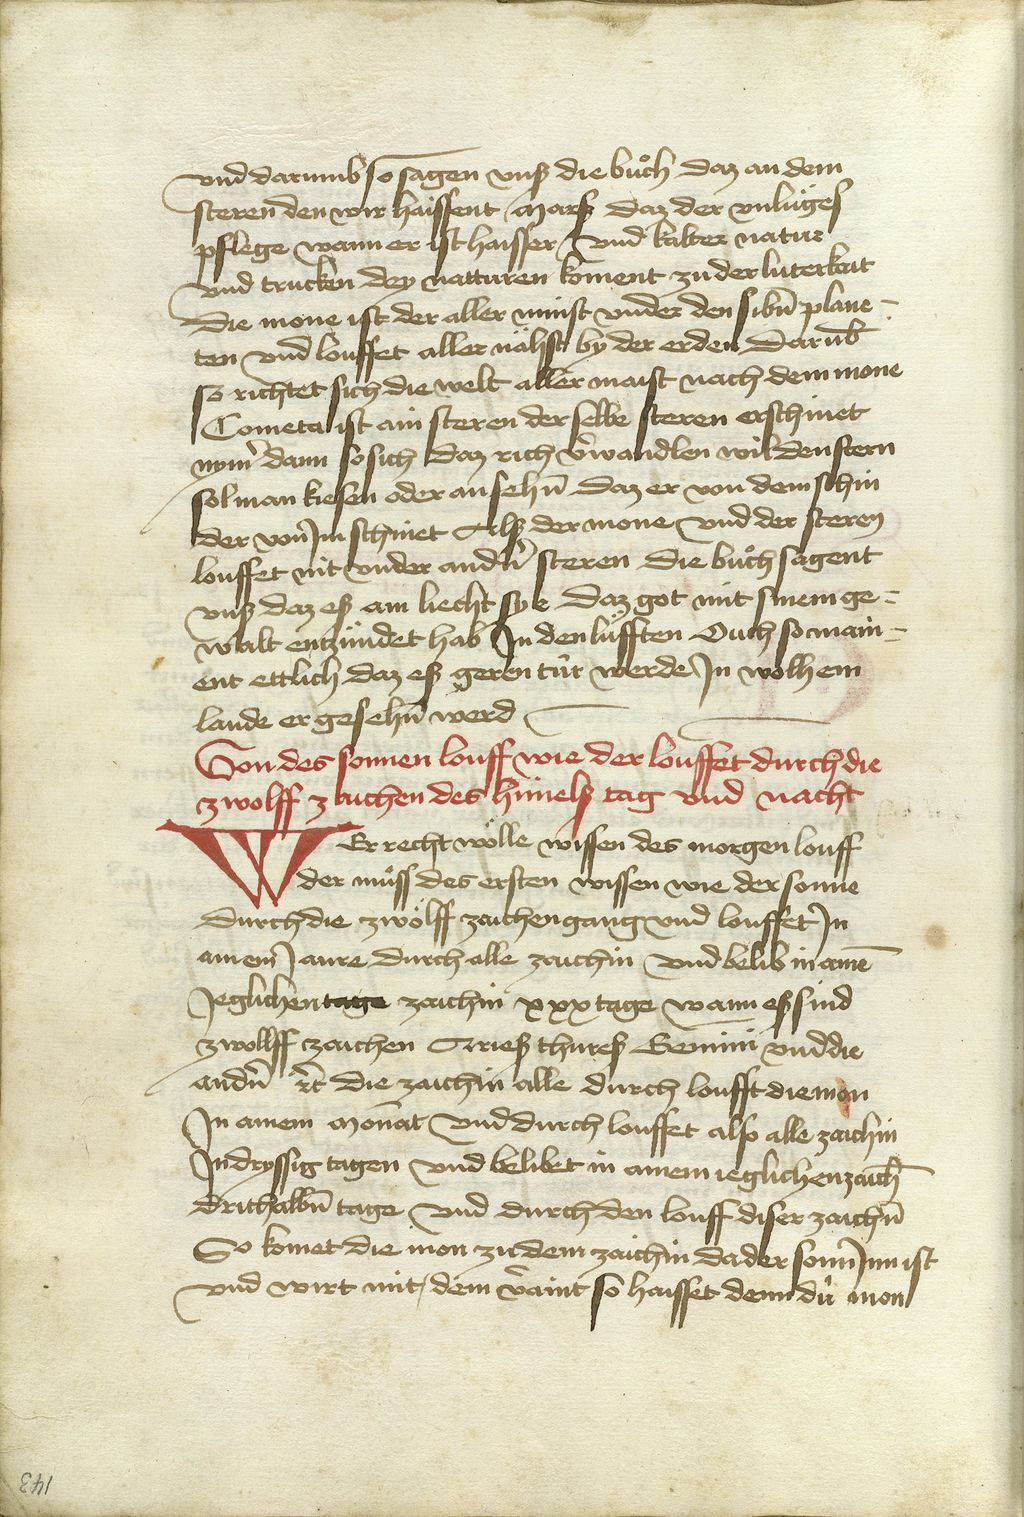 vnd darumb so sagen vnß die buͦch daz an dem
steren den wir haissent Marß daz der vnlüges
pflege wann er ist haisser vnd kalter natur
vnd trucken dey natturen koment zu der luterkait
Die mone ist der aller minst vnder den sibn̄ plane-
ten vnd louffet aller nähst by der erden Darūb
so richtet sich die welt aller maist nach dem mone
Cometa ist ain steren der selbe steren erschinet
nym̄ dann so sich daz rich v̄wandlen wil den stern
sol man kiesen oder ansehn̄ daz er von dem schin
der von Im schinet Alß der mone vnd der steren
louffet nit vnder andn̄ steren die buͦch sagent
vnß daz eß am liecht sye daz got mit sinem ge-
walt entzündet hab In den lüfften Ouch so main-
ent ettlich daz eß geren tür werde In wolhem
lande er gesehn̄ werd
Von des sonnen louff wie der louffet durch die
zwolff zaichen des himelß tag vnd nacht
WEr recht wölle wissen des morgen louff
der muͦss des ersten wissen wie der sonne
durch die zwölff zaichen gang vnd louffet In
ainem Jaure durch alle zaichin vnd belib in aine͞
Jeglichen tage zaichin xxx tage wann eß sind
zwollff zaichen Arieß thureß Gemini vnd die
andn̄ rc̄ die zaichin alle durch loufft die mon
In ainem Monat vnd durch louffet also alle zaichin
In dryssig tagen vnd belibet in ainem ieglichen zaich̄
drithalbn̄ tage vnd durch den louff diser zaichn̄
So komet die mon zu dem zaichin da der sonn Inn ist
vnd wirt mit dem v̄aint so haisset denn dü mon
143